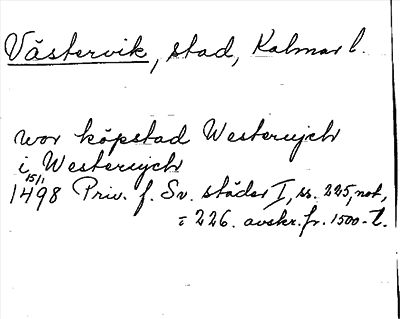 Västervik, stad, Kalmar l.
wor köpstad Westerwijch
i Westerwijch
15/1
1498 Priv. f. Sv. städer I, ss. 225, not,
= 226. avskr. fr. 1500-t.